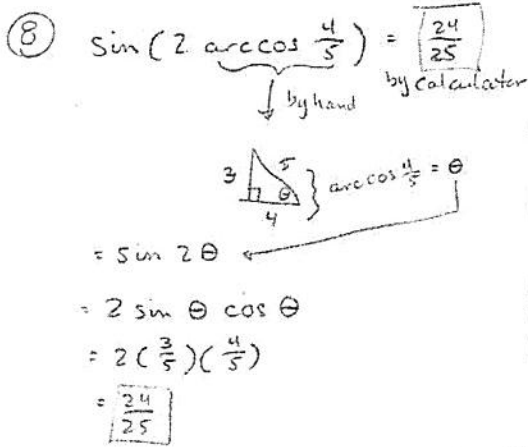 ⑧ sin(2 arccos 4/5) = 24/25
by calculator
by hand
3 5 θ 4 } arccos 4/5 = θ
= sin 2θ
= 2 sin θ cos θ
= 2(3/5)(4/5)
= 24/25